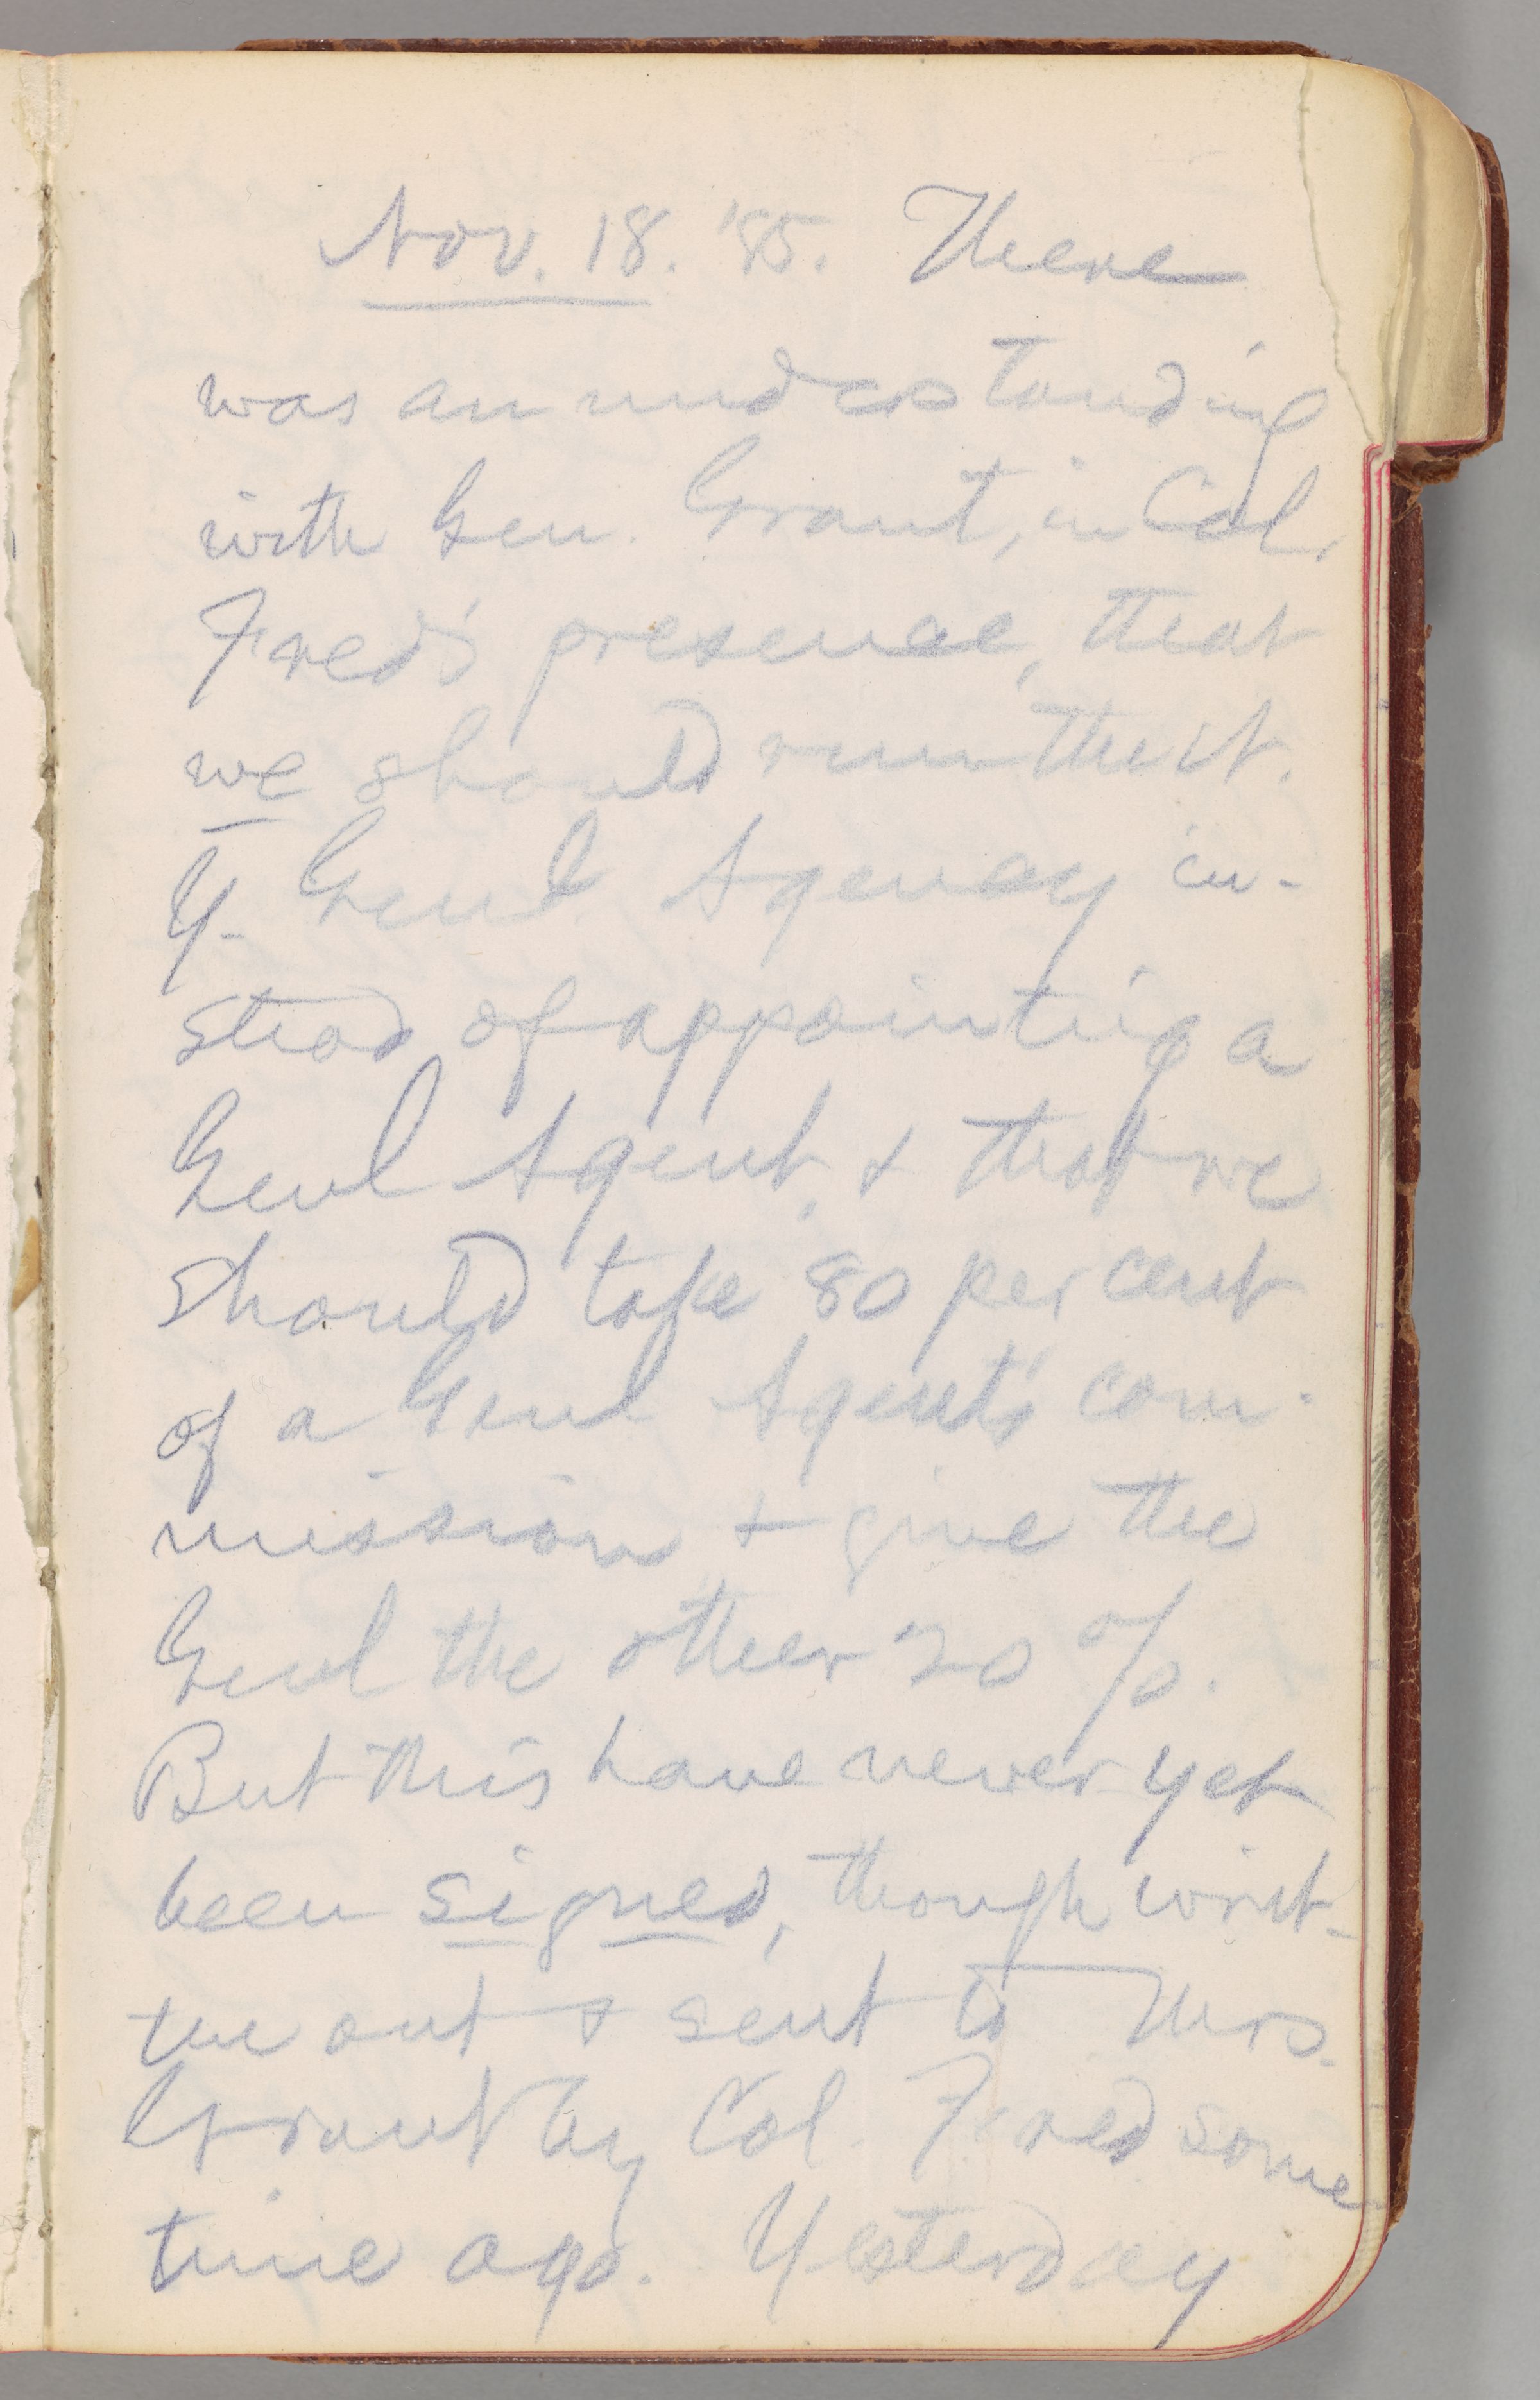 Nov. 18. '85. There
was an understanding
with Gen. Grant, in Col.
Fred's presence, that
we should run the N.
Y. Genl. Agency in-
stead of appointing a
Genl Agent, & that we
should take 80 per cent
of a Genl Agent's com-
mission & give the
Genl the other 20 %.
But this have never yet
been signed, though writ-
ten out & sent to Mrs.
Grant by Col. Fred some
time ago. Yesterday